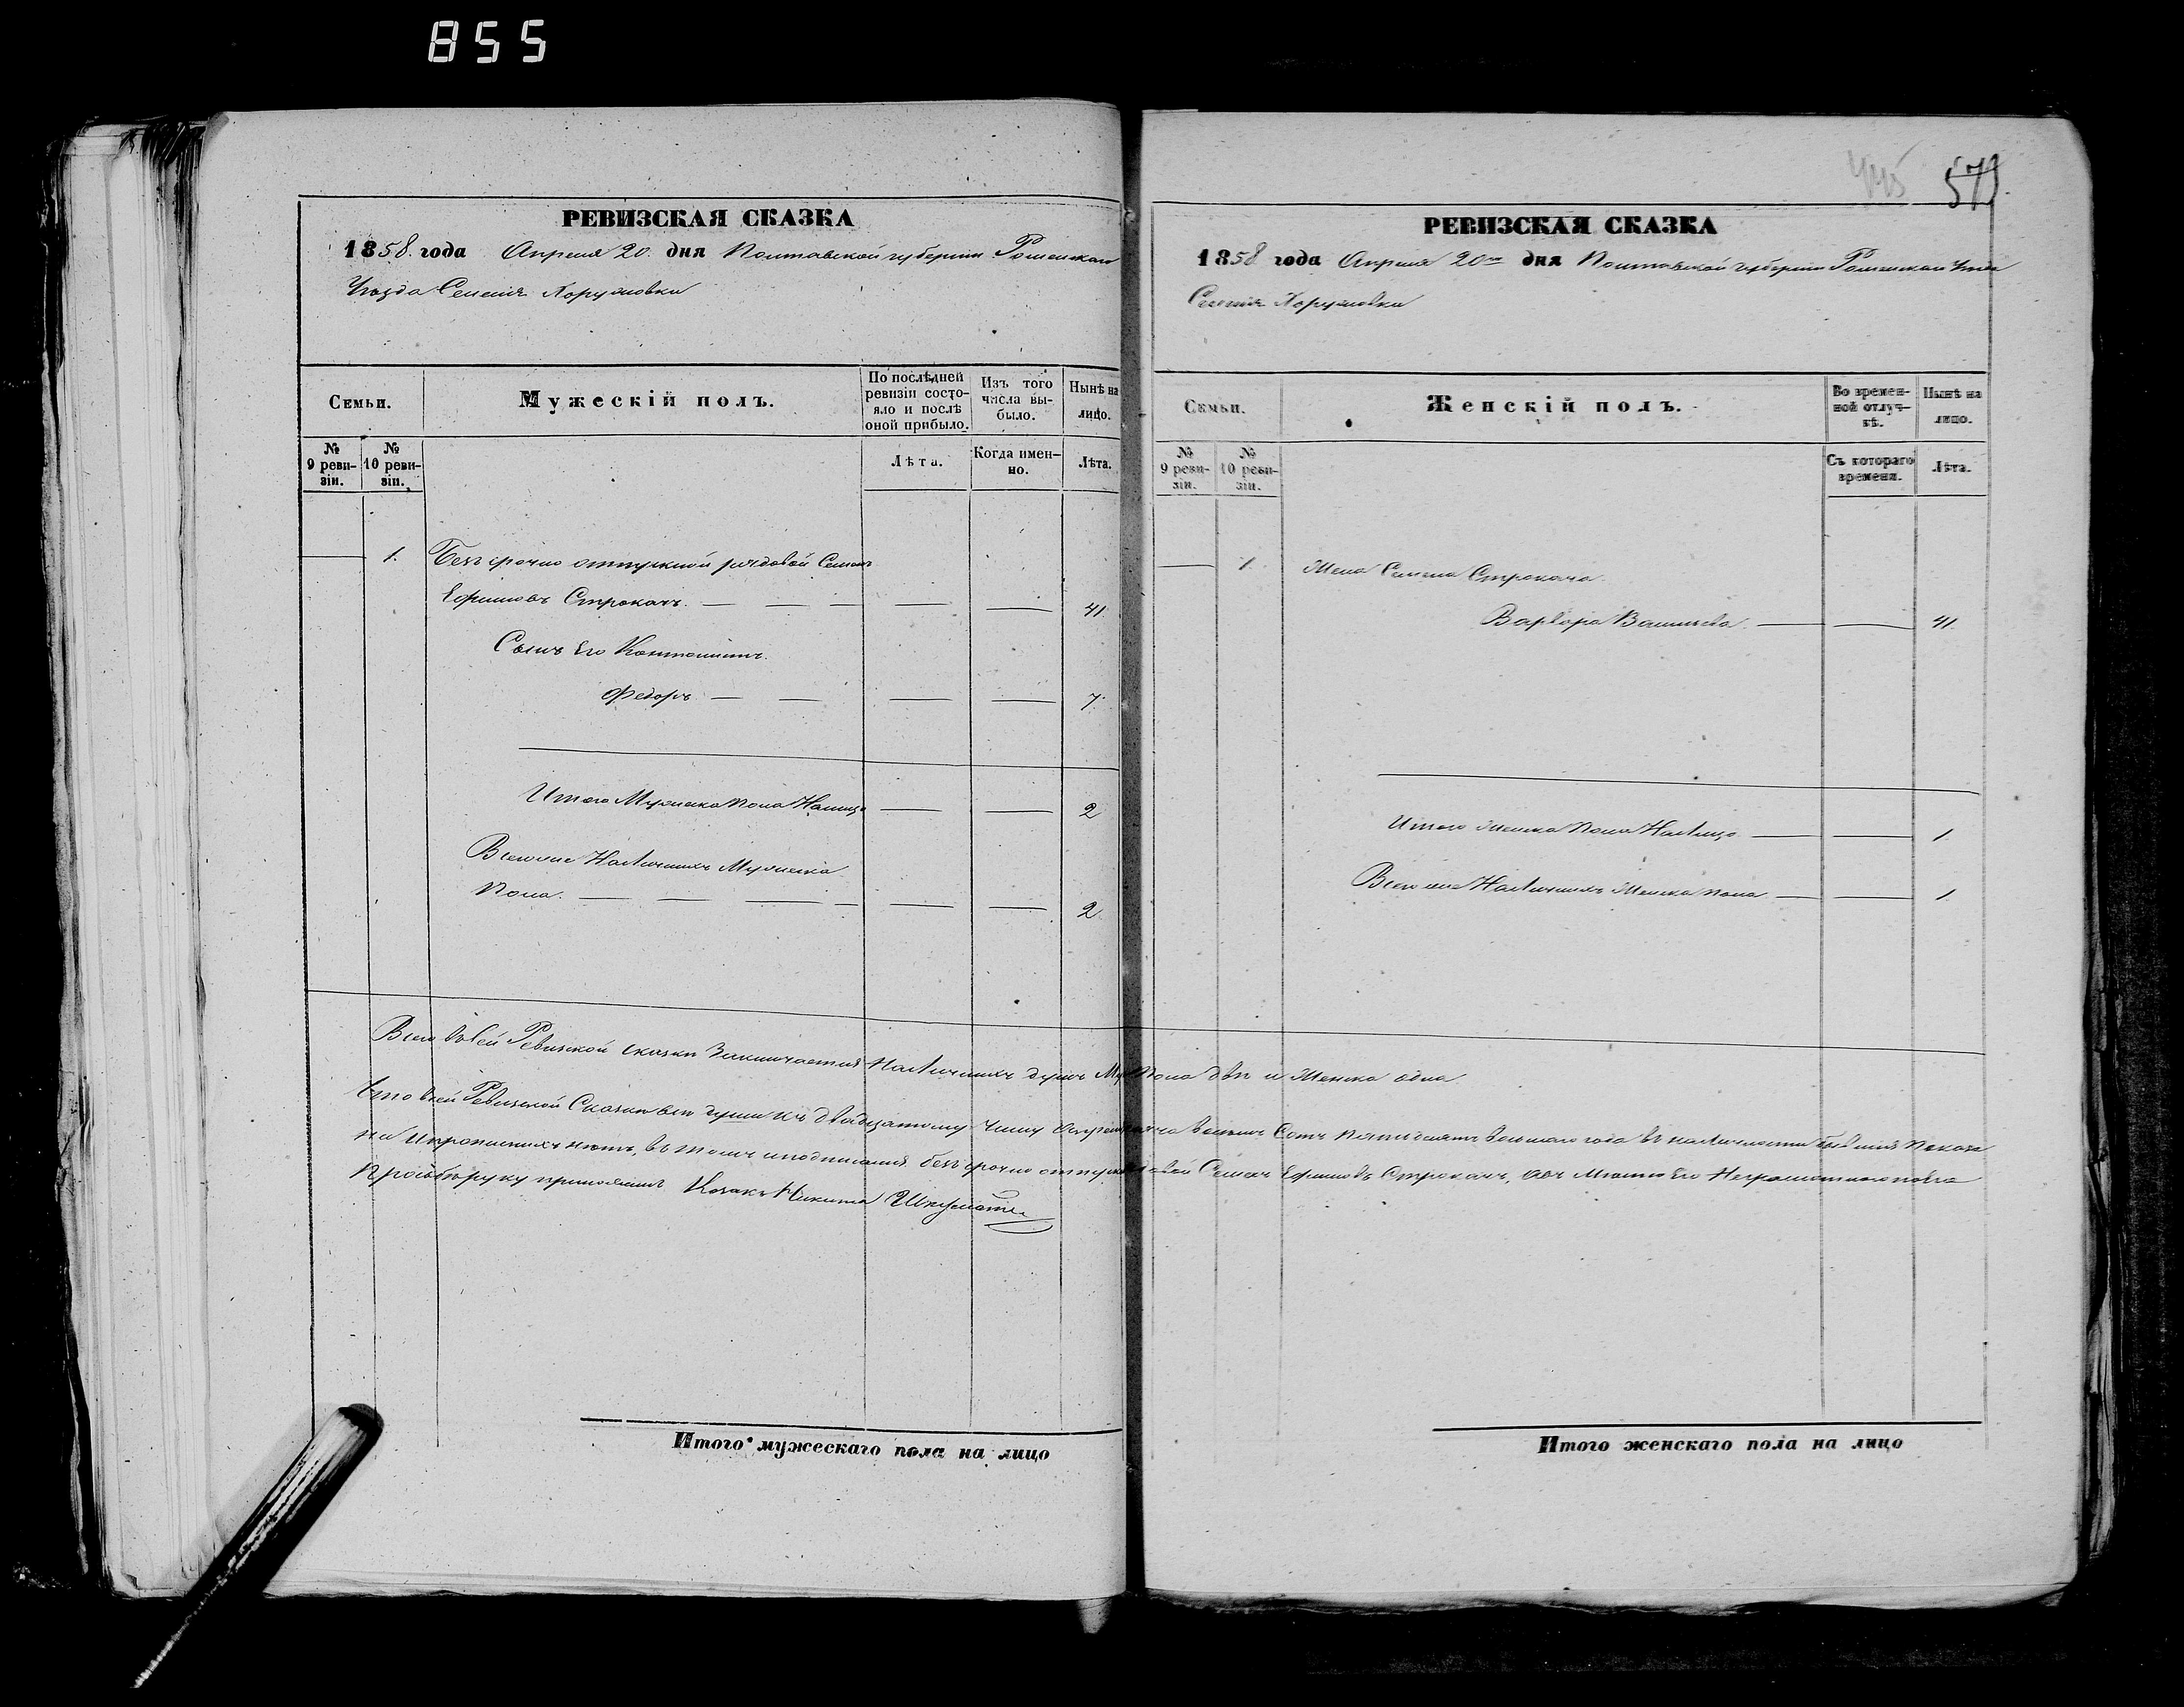 855
РЕВИЗСКАЯ СКАЗКА
1858 года Апреля 20 дня Полтавской губернии Роменскаго
Уезда Селения Хоружовки
Семьи.
Мужескій полъ.
По послѣдней ревизіи состо-
яло и послѣ оной прибыло.
Изъ того числа вы-
было.
Нынѣ на лицо.
№ 9 реви-
зіи.
№ 10 реви-
зіи.
Лѣта.
Когда имен-
но.
Лѣта.
1. Безсрочно отпускной рядовой Семенъ
Ефимовъ Строкачъ. — — — — — 41.
Сынъ Его Кантонистъ.
Федоръ — — — — 7.
Итого Мужеска Пола Налицо — — 2
Всего же Наличныхъ Мужеска
Пола. — — — — — — 2.
Итого мужескаго пола на лицо
571.
РЕВИЗСКАЯ СКАЗКА
1858 года Апреля 20го дня Полтавской губернии Роменскаго Уезда
Селения Хоружовки
Семьи.
Женскій полъ.
Во времен-
ной отлуч-
кѣ.
Нынѣ на лицо.
№ 9 реви-
зіи.
№ 10 реви-
зіи.
Съ котораго времени.
Лѣта.
1. Жена Семена Строкача.
Варвара — — 41.
Итого Женска Пола Налицо — — 1
Всего же Наличныхъ Женска пола — — 1
Всего въ сей Ревизской сказки Заключается Наличныхъ душъ Му Пола две и Женска одна
Что въ сей Ревизской Сказки все души къ двадцатому числу Апреля восемь Сотъ пятьдесятъ восьмаго года въ наличности бывшия показа
ны и прописныхъ нетъ, въ томъ и подписался безсрочно отпускной Семенъ Ефимовъ Строкачъ, а въ место Его Неграмотнаго по его
прозьбе руку приложилъ Козакъ Никита
Итого женскаго пола на лицо